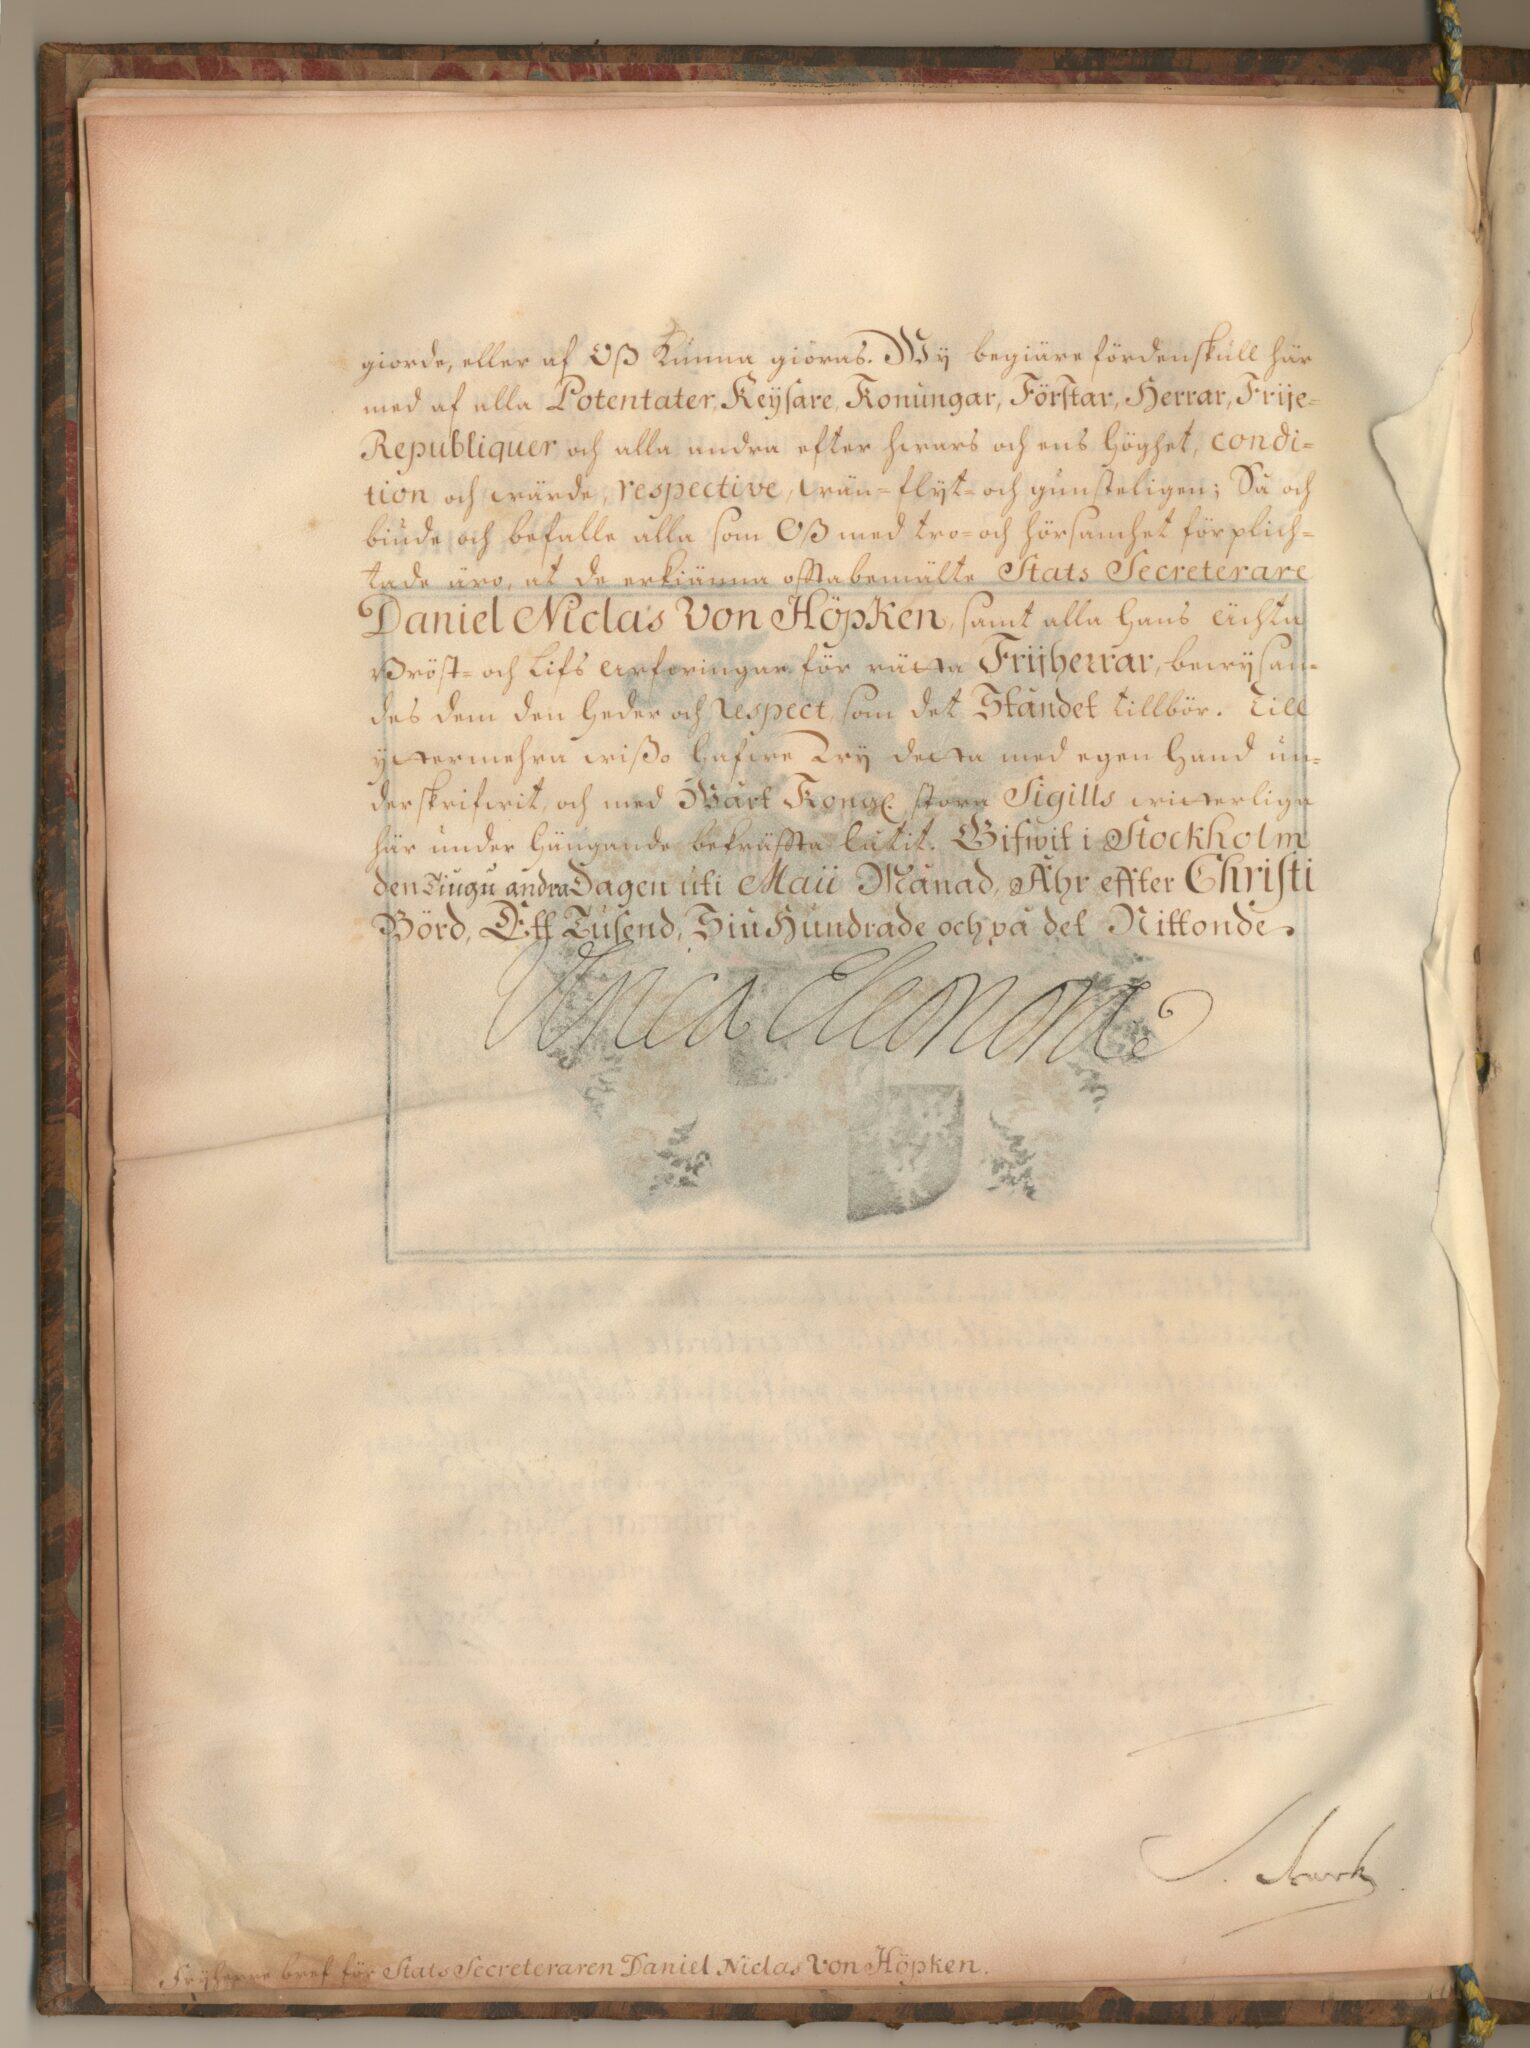 giorde, eller af Oß kunna giöras. Wy begiäre fördenskull här
med af alla Potentater, Keÿsare, Konungar, Förstar, Herrar, Frije=
Republiquer och alla andra efter hwars och ens Höghet, condi=
tion och wärde, respective, wän= flyt= och gunsteligen; Så och
biude och befalle alla som Oß med tro= och hörsamhet förplich=
tade äro, at de erkiänna offtabemälte Stats Secreterare
Daniel Niclas Von Höpken, samt alla Hans ächta
Bröst= och Lifs arfwingar för rätta Frijherrar, bewysan=
des dem den heder och respect, som det Ståndet tillbör. Till
yttermehra wißo hafwe Wy detta med egen Hand un=
derskrifwit, och med Wårt Kongl. stora Sigills witterliga
här under hängande bekräffta låtit. Gifwit i Stockholm
den Tiugu andra Dagen uti Maii Månad, Åhr effter Christi
Börd, Ett Tusend, Siu Hundrade och på det Nittonde.
Ulrica Eleonora
Frÿherre bref för Stats Secreteraren Daniel Niclas Von Höpken.